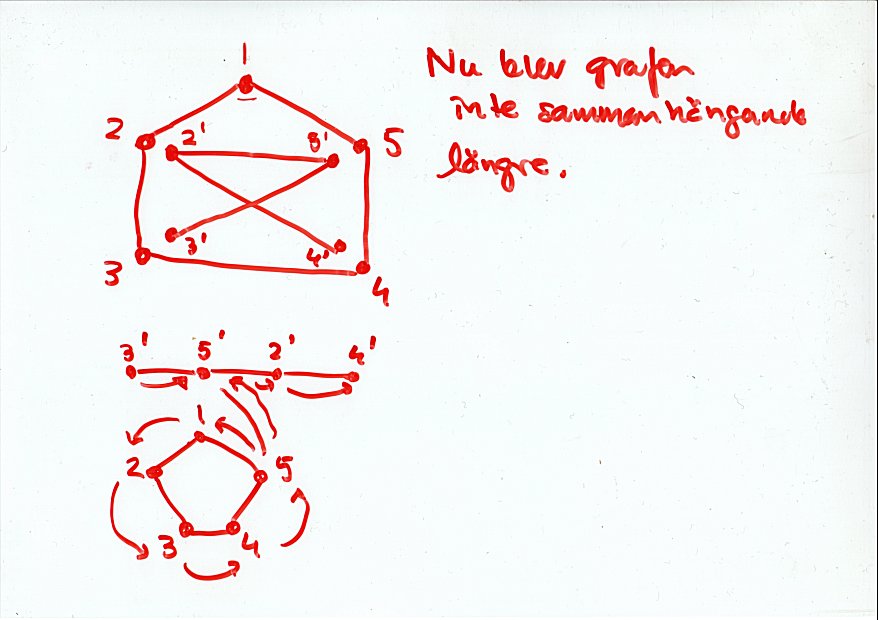 1
Nu blev grafen
inte sammanhängande
längre.
2
2'
5'
5
3'
4'
3
4
3' 5' 2' 4'
1
2
5
3
4